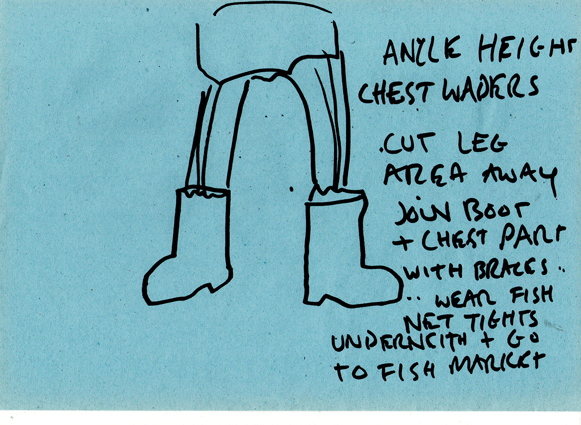 ANKLE HEIGHT
CHEST WADERS
.CUT LEG
AREA AWAY
JOIN BOOT
+ CHEST PART
WITH BRACES ..
.. WEAR FISH
NET TIGHTS
UNDERNEITH + GO
TO FISH MARKET